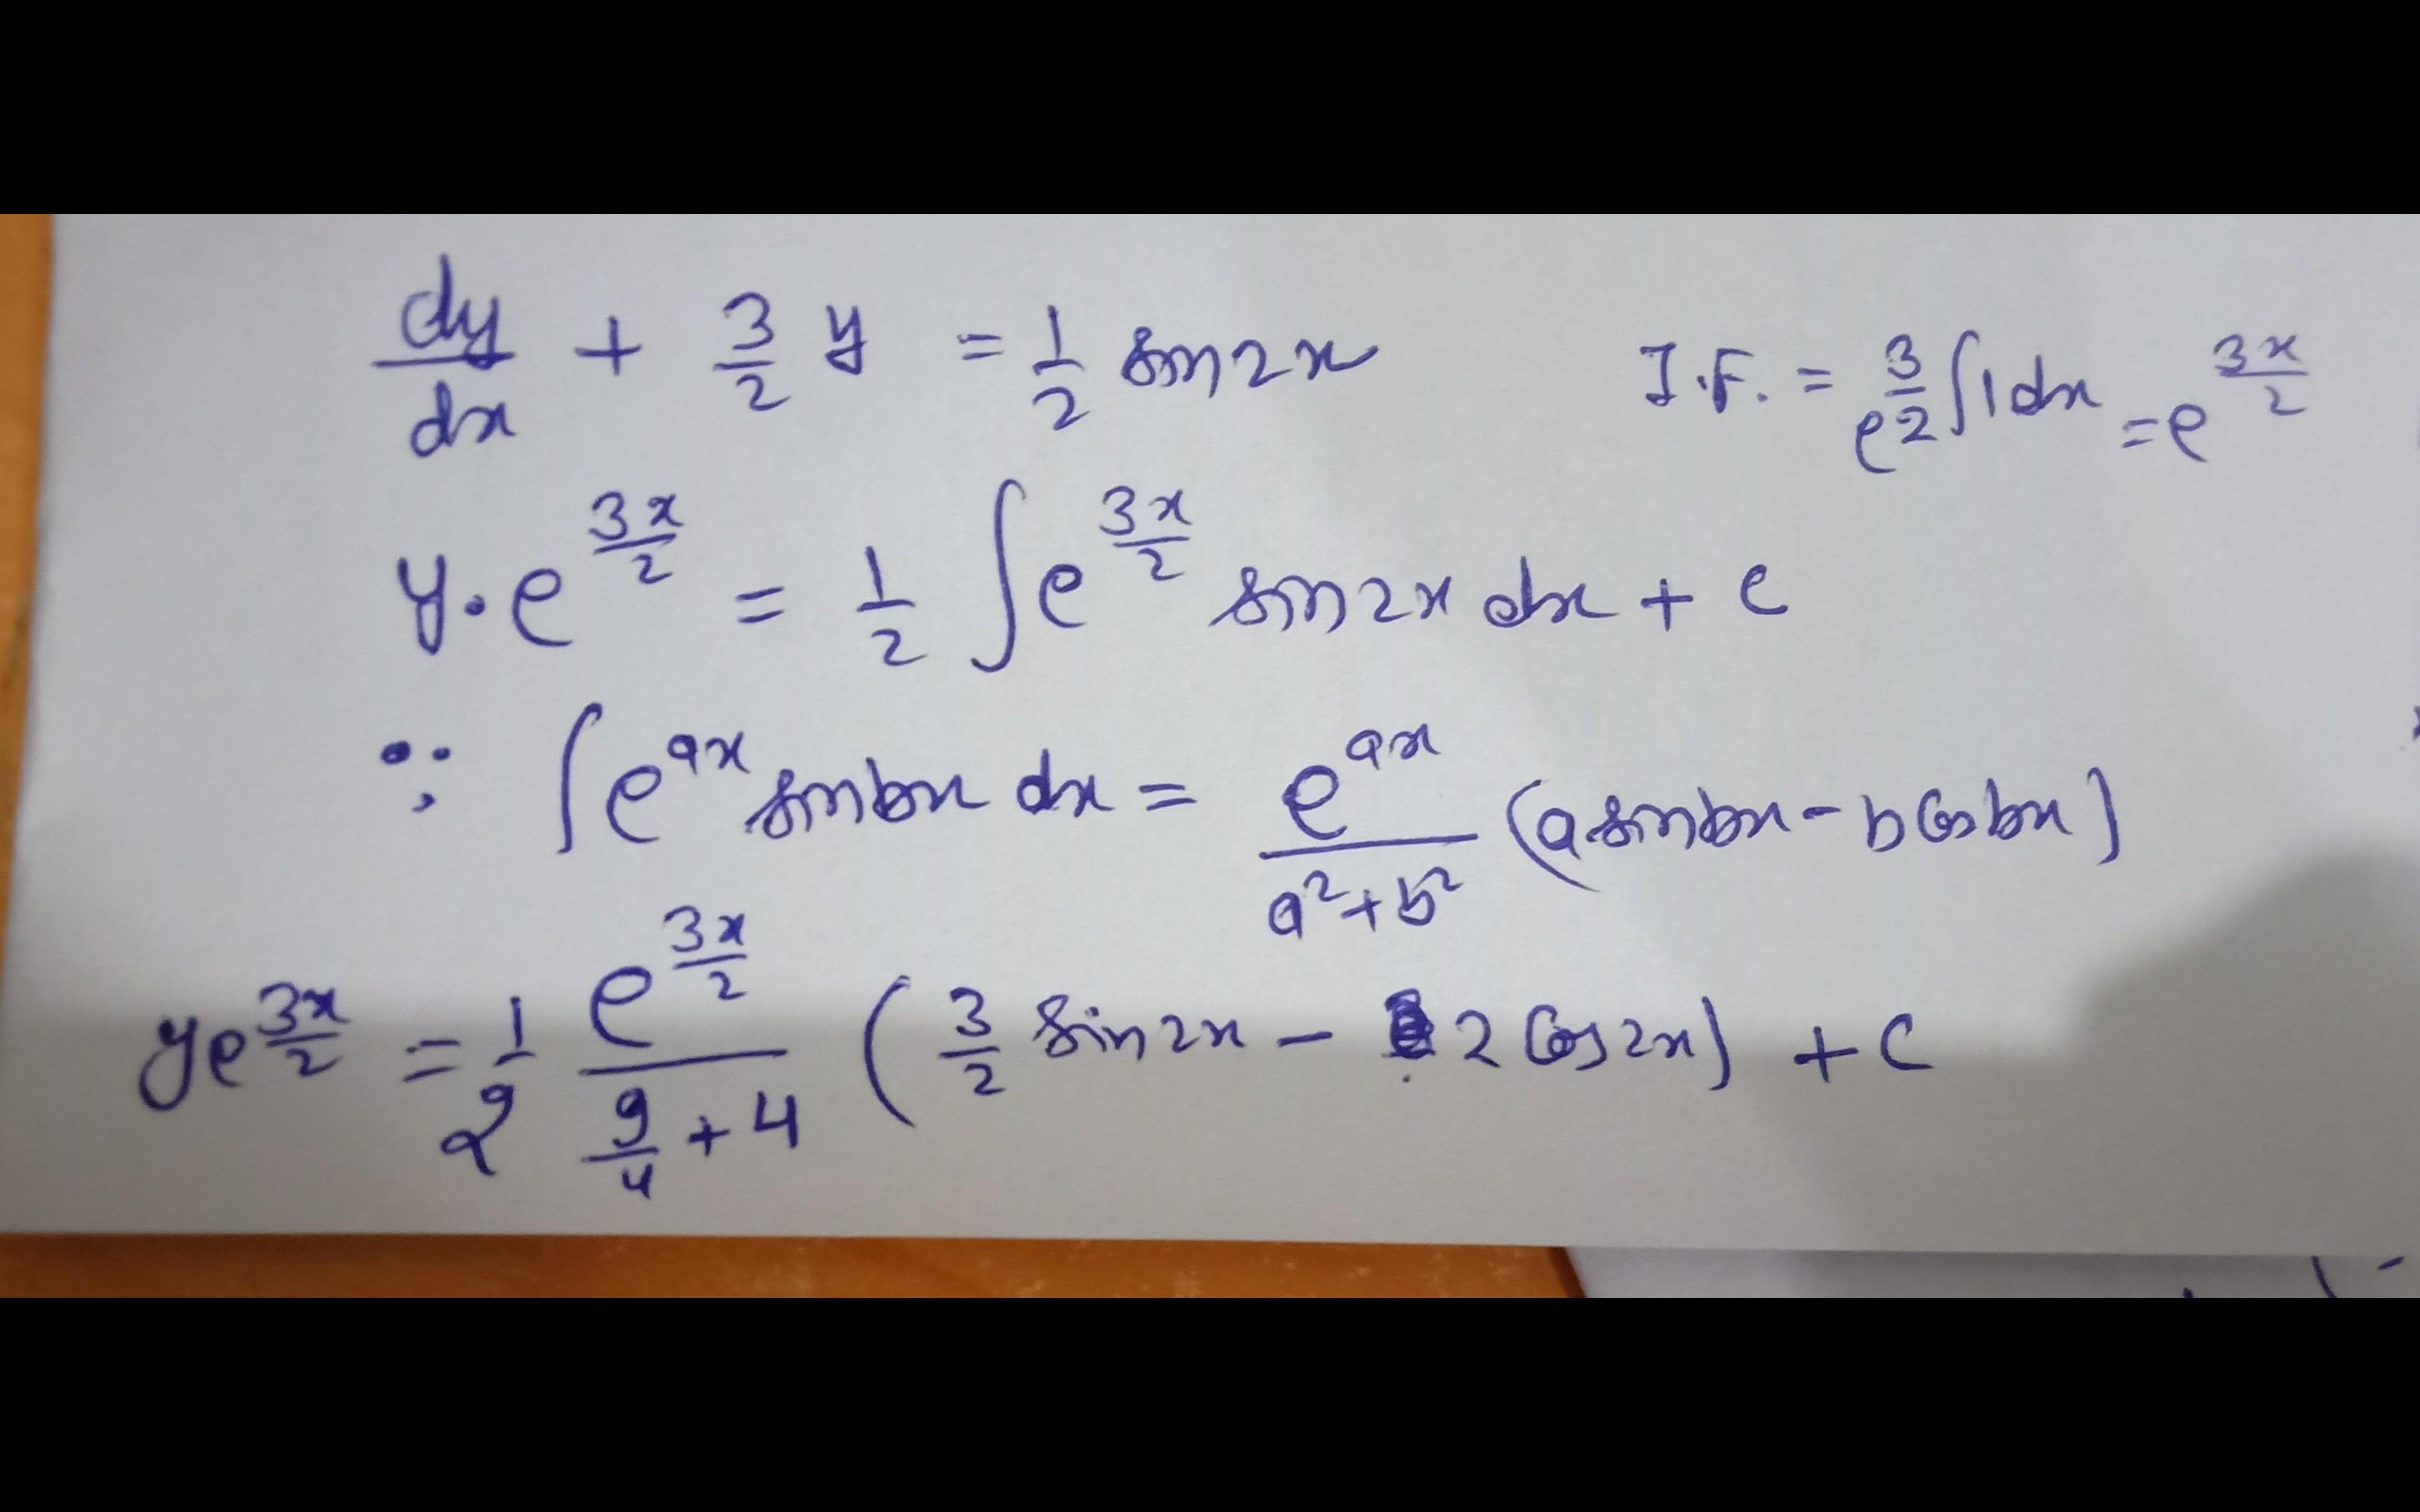 dy/dx + 3/2 y = 1/2 sin2x    I.F. = e^(3/2 ∫1dx) = e^(3x/2)
y·e^(3x/2) = 1/2 ∫e^(3x/2) sin2x dx + c
∵ ∫e^(ax) sinbx dx = e^(ax)/(a²+b²) (a sinbx - b Cosbx)
ye^(3x/2) = 1/2 e^(3x/2)/(9/4 + 4) (3/2 sin2x - 2 Cos2x) + c